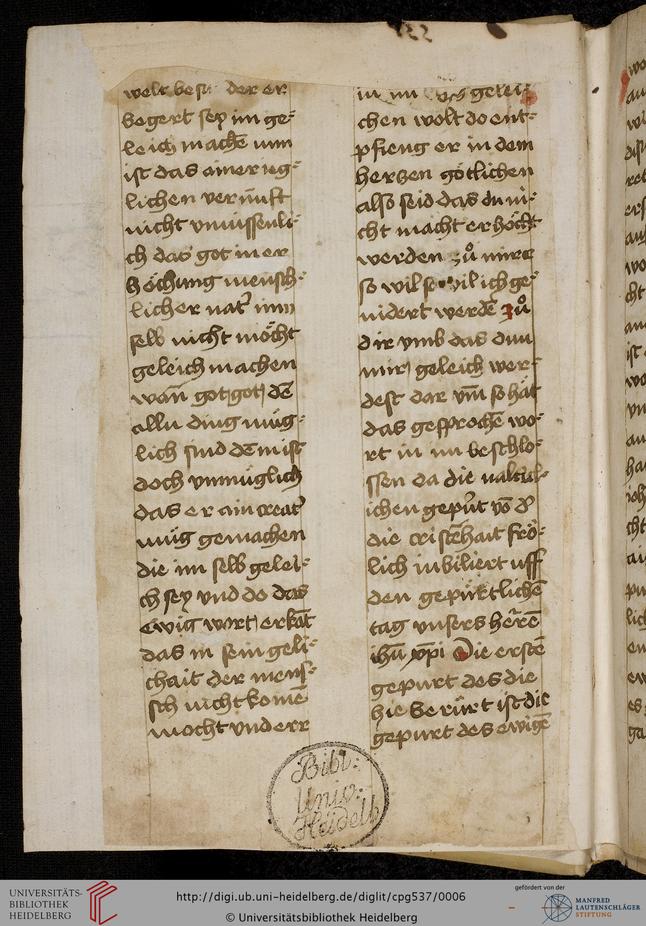 welt besu der er
begert sey im ge⸗
leich mache᷑ wm
ist das einer ieg⸗
lichen vernu᷑ft
nicht vnwissenli⸗
ch das got in er
höchung mensch⸗
licher nat᷑ im
selb nicht möcht
geleich machen
wan᷑ got got de᷑
allu ding müg⸗
lich sind de᷑m ist
doch vnmüglich
das er ain creat᷑
müg gemachen
die im selb gelei⸗
ch sey vnd do das
ewig wort erka᷑t
das in sein geli⸗
chait der mens⸗
sch nicht kome᷑
mocht vnd err
in im gelei⸗
chen wolt do ent⸗
pfieng er in dem
herczen götlichen
also seid das du ni⸗
cht macht erhöcht
werden zů mir
so wil ich ge⸗
nidert werde᷑ zů
dir vmb das du
mir geleich wer⸗
dest dar vm᷑ so hat
das gesproche᷑ wo⸗
rt in im beschlo⸗
ssen da die
ichen gepu᷑t vo᷑ d᷑
die criste᷑hait frö⸗
lich iubiliert uff
den gepürtliche᷑
tag vnsers he᷑re᷑
ihu᷑ xp᷑i Die erste᷑
gepurt des die
hie berürt ist die
gepurt des ewige᷑
Bibl:
Univ:
Heidelb
UNIVERSITÄTS-
BIBLIOTHEK
HEIDELBERG
http://digi.ub.uni-heidelberg.de/diglit/cpg537/0006
© Universitätsbibliothek Heidelberg
gefördert von der
MANFRED
LAUTENSCHLÄGER
STIFTUNG